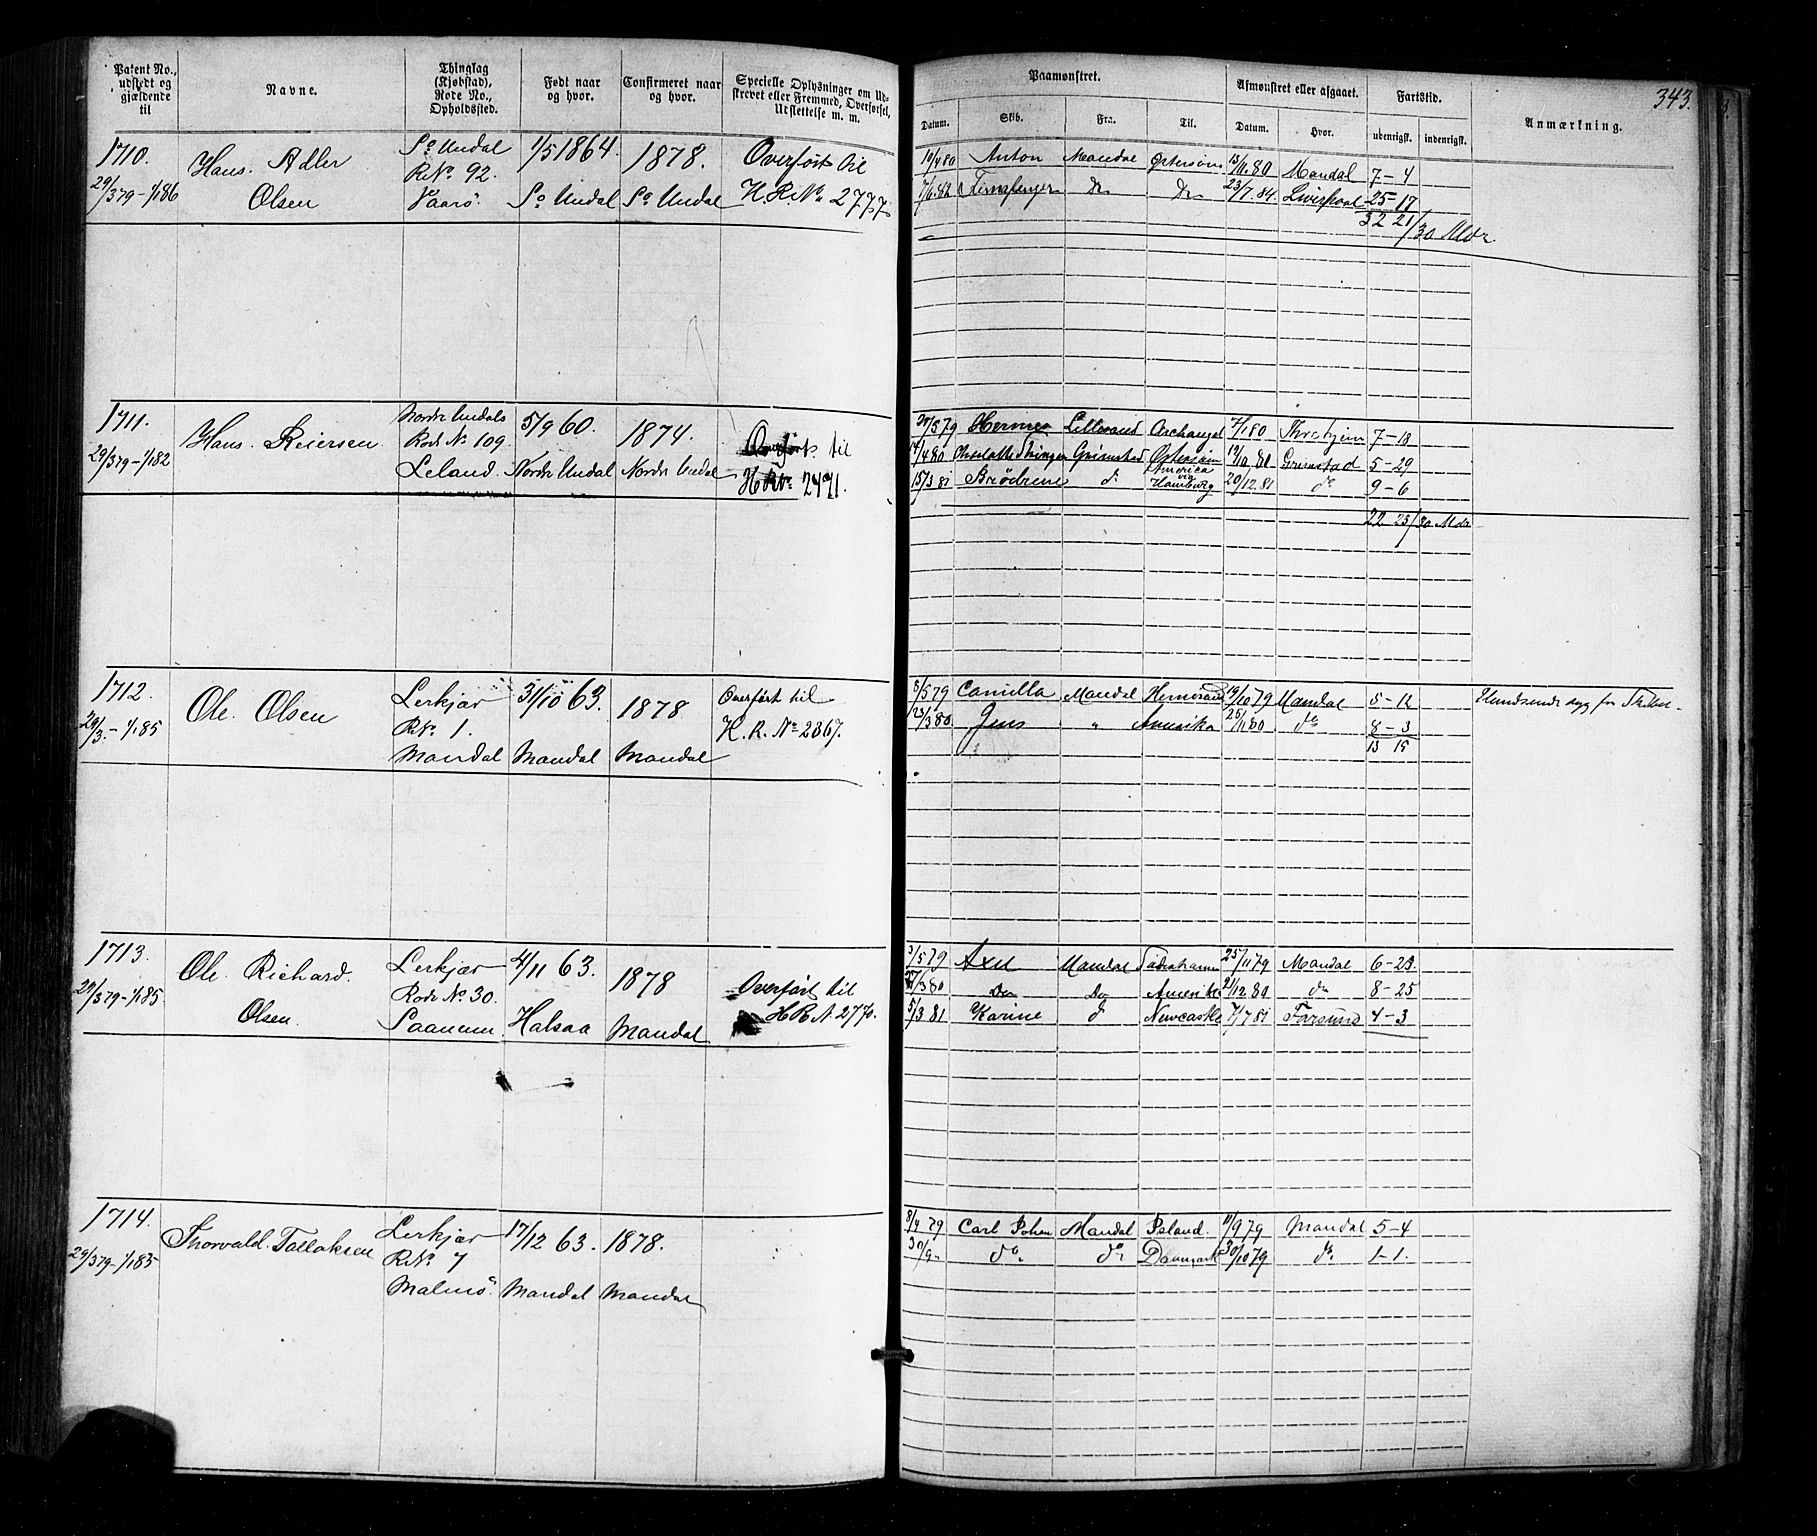 343.
Patent No., udstedt og gjældende til
Navne.
Thinglag (Kjøbstad), Rode No., Opholdssted.
Født naar og hvor.
Confirmeret naar og hvor.
Specielle Oplysninger om Udskrevet eller Fremmed, Overførsel, Udslettelse m. m.
Paamønstret.
Datum. Skib. Fra. Til.
Afmønstret eller afgaaet.
Datum. Hvor.
Fartstid.
udenrigsk. indenrigsk.
Anmærkning.
1710. Hans Adler So Undal 1/5 1864. 1878. Overført til
29/3 79 - 1/1 86 Olsen R.No. 92. So Undal So Undal H.R.No. 2777
Vaarø.
10/4 80 Anton Mandal Østersøen 13/11 80 Mandal 7-4
7/6 82 do do 23/7 84. Liverpool 25-17
32 21/30 Mdr
1711. Hans Reiersen Nordre Undals 5/9 60. 1874. Overført til
29/3 79 - 1/1 82 Rode No 109. Nordr Undal Nordr Undal H R No 2471.
Leland.
Hermes Lillesand Archangel 7/1 80 7-18
14/4 80 Grimstad Østersøen 19/10 80 Grimstad 5-29
15/3 81 Brødrene do America via Hamburg 20/12 81 do 9-6
22 23/30 Mdr
1712. Ole Olsen Lerkjær 31/10 63. 1878 Overført til
29/3 - 1/1 85 R.No 1. H. R. No 2367.
Mandal Mandal Mandal
8/5 79 Camilla Mandal 19/10 79 Mandal 5-12
23/3 80 Jens " Amerika 25/11 80 do 8-3
13 15
1713. Ole Richard Lerkjær 4/11 63. 1878 Overført til
29/3 79 - 1/1 85 Olsen. Rode No 30. Halsaa Mandal H R N. 2770.
Saanum
3/5 79 Axel Mandal 25/11 79 Mandal 6-23.
/3 80 Do Do Amerika 2/12 80 do 8-25
5/3 81 Karine do Newcastle 7/7 81 Farsund 4-3
1714. Thorvald Tallaksen Lerkjær 17/12 63. 1878.
29/3 79 - 1/1 85 R.No 7
Malmø. Mandal Mandal
8/4 79 Carl Johan Mandal Island. 11/9 79 Mandal 5-4
30/9 - do do Danmark 30/10 79 do 1-1.